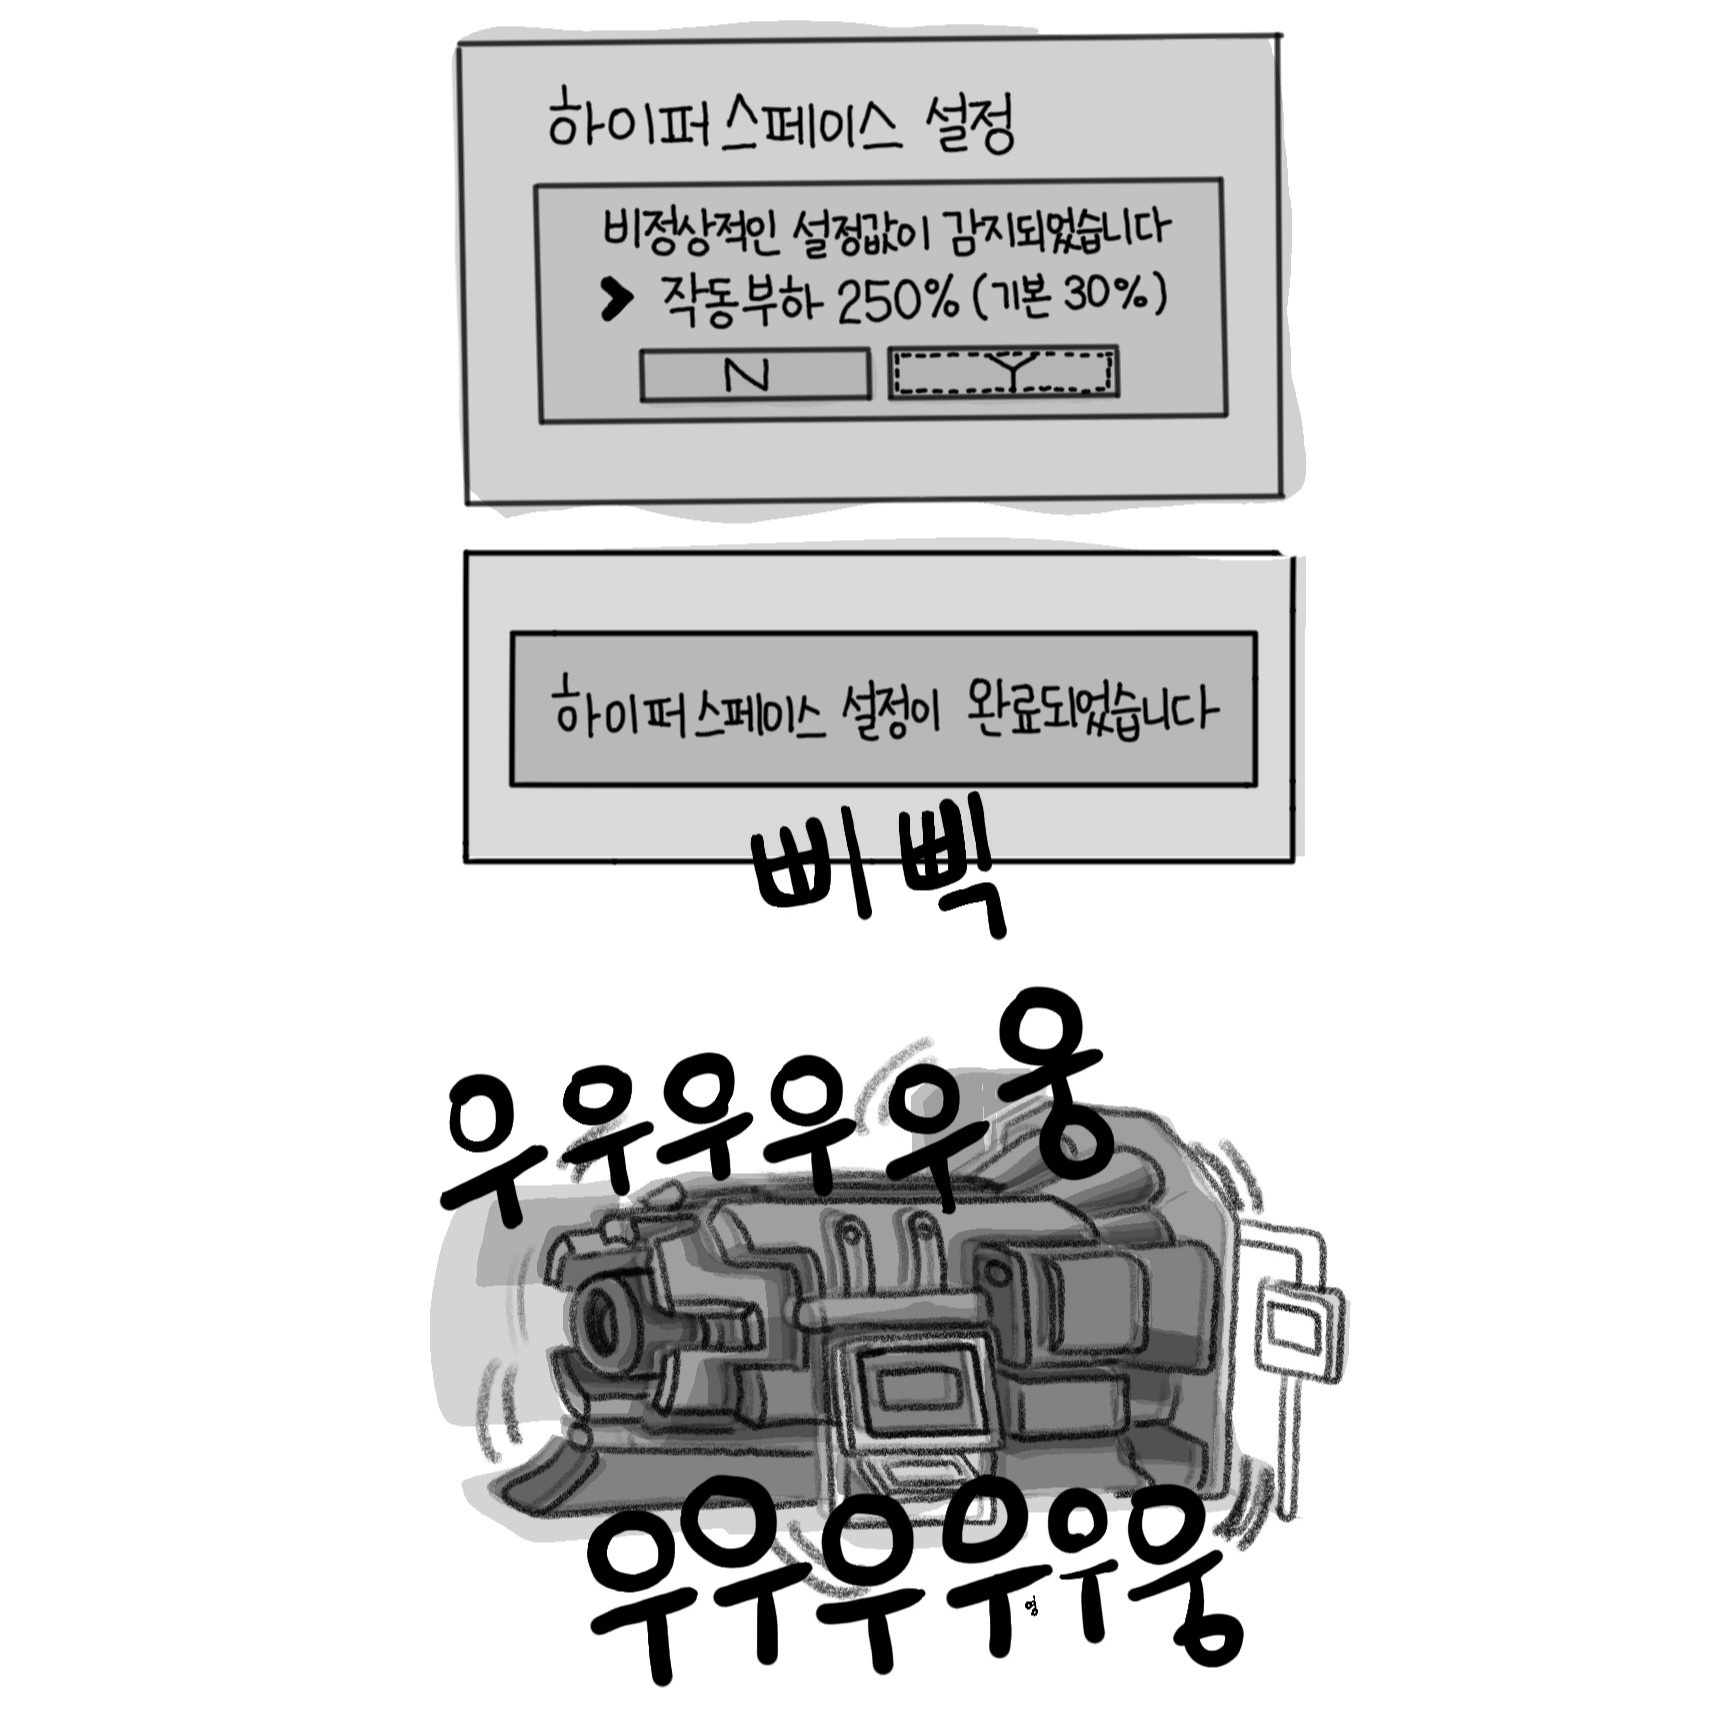 하이퍼스페이스 설정
비정상적인 설정값이 감지되었습니다
> 작동부하 250% (기본 30%)
N Y
하이퍼스페이스 설정이 완료되었습니다
삐삑
우우우우우웅
우우우우우웅